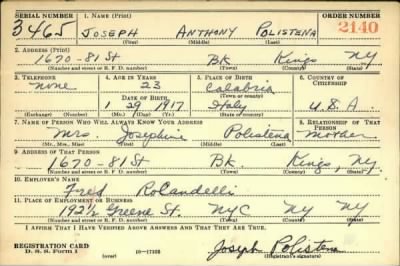 SERIAL NUMBER 1. NAME (Print) ORDER NUMBER
3465 JOSEPH ANTHONY POLISTENA 2140
(First) (Middle) (Last)
2. ADDRESS (Print)
1670-81 St BK Kings NY
(Number and street or R. F. D. number) (Town) (County) (State)
3. TELEPHONE 4. AGE IN YEARS 5. PLACE OF BIRTH 6. COUNTRY OF CITIZENSHIP
None 23 Calabria
DATE OF BIRTH (Town or county)
1 29 1917 Italy U.S.A.
(Exchange) (Number) (Mo.) (Day) (Yr.) (State or country)
7. NAME OF PERSON WHO WILL ALWAYS KNOW YOUR ADDRESS 8. RELATIONSHIP OF THAT PERSON
Mrs. Josephine Polistena Mother
(Mr., Mrs., Miss) (First) (Middle) (Last)
9. ADDRESS OF THAT PERSON
1670-81 St BK. Kings, NY.
(Number and street or R. F. D. number) (Town) (County) (State)
10. EMPLOYER'S NAME
Fred Rolandelli
11. PLACE OF EMPLOYMENT OR BUSINESS
192½ Greene St. NYC NY NY
(Number and street or R. F. D. number) (Town) (County) (State)
I AFFIRM THAT I HAVE VERIFIED ABOVE ANSWERS AND THAT THEY ARE TRUE.
REGISTRATION CARD
D. S. S. Form 1 (over) 16-17105 Joseph Polistena
(Registrant's signature)